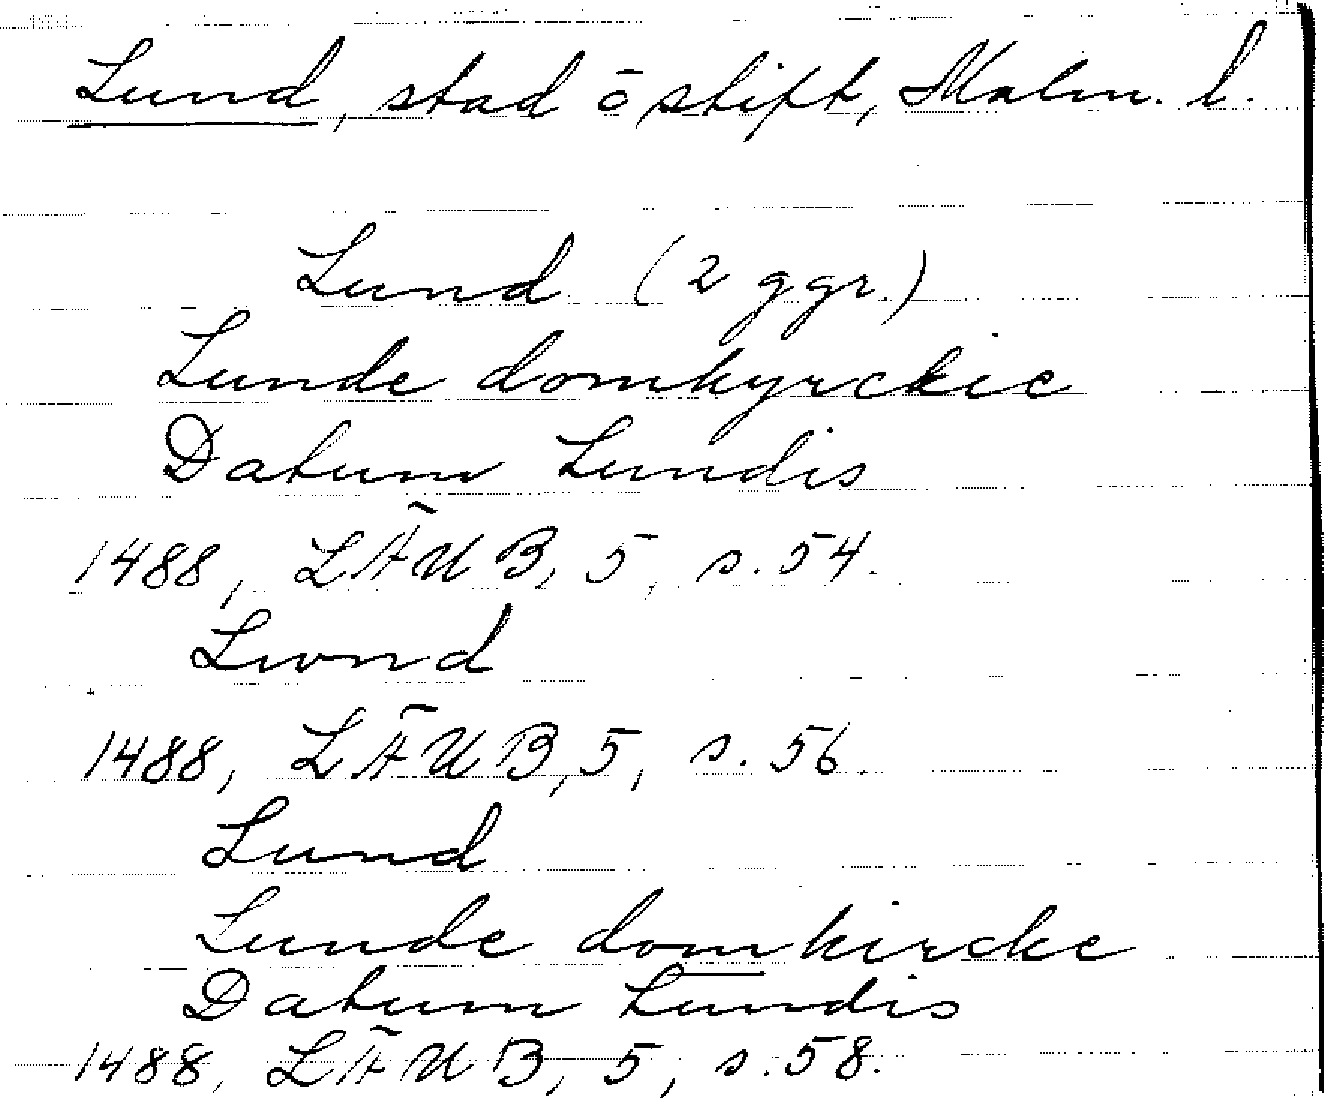 Lund, stad o stift, Malm. l.
Lund (2 ggr.)
Lunde domkyrckie
Datum Lundis
1488, LÄUB, 5, s. 54.
Lwnd
1488, LÄUB, 5, s. 56.
Lund
Lunde domkircke
Datum Lundis
1488, LÄUB, 5, s. 58.